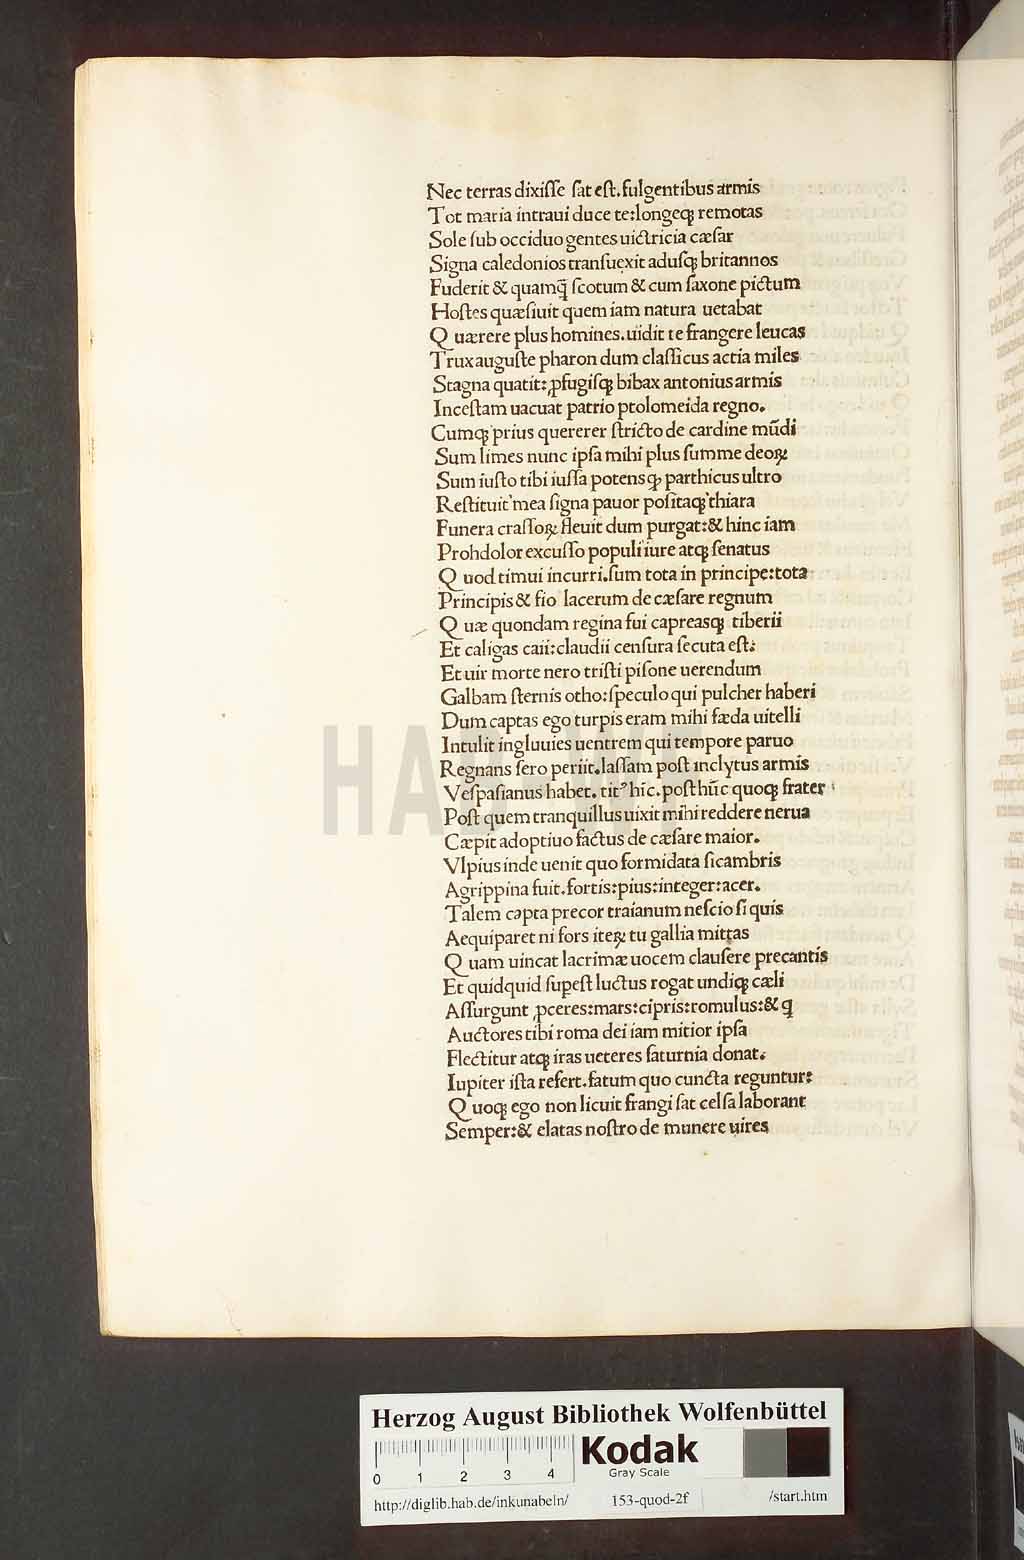 Nec terras dixiſſe ſat eſt.fulgentibus armis
Tot maria intraui duce te:longeqꝫ remotas
Sole ſub occiduo gentes uictricia cæſar
Signa caledonios tranſuexit aduſqꝫ britannos
Fuderit & quamq̃ ſcotum & cum ſaxone pictum
Hoſtes quæſiuit quem iam natura uetabat
Quærere plus homines.uidit te frangere leucas
Trux auguſte pharon dum claſſicus actia miles
Stagna quatit:ꝓfugiſqꝫ bibax antonius armis
Inceſtam uacuat patrio ptolomeida regno.
Cumqꝫ prius quererer ſtricto de cardine mũdi
Sum limes nunc ipſa mihi plus ſumme deoꝝ
Sum iuſto tibi iuſſa potensqꝫ parthicus ultro
Reſtituit mea ſigna pauor poſitaqꝫ thiara
Funera craſſoꝝ fleuit dum purgat:& hinc iam
Prohdolor excuſſo populi iure atqꝫ ſenatus
Quod timui incurri.ſum tota in principe:tota
Principis & fio lacerum de cæſare regnum
Quæ quondam regina fui capreasqꝫ tiberii
Et caligas caii:claudii cenſura ſecuta eſt:
Et uir morte nero triſti piſone uerendum
Galbam ſternis otho:ſpeculo qui pulcher haberi
Dum captas ego turpis eram mihi fæda uitelli
Intulit ingluuies uentrem qui tempore paruo
Regnans ſero periit.laſſam poſt inclytus armis
Veſpaſianus habet. titꝰ hĩc. poſt hũc quoqꝫ frater
Poſt quem tranquillus uixit mihi reddere nerua
Cæpit adoptiuo factus de cæſare maior.
Vlpius inde uenit quo formidata ſicambris
Agrippina fuit.fortis:pius:integer:acer.
Talem capta precor traianum neſcio ſi quis
Aequiparet ni fors iteꝝ tu gallia mittas
Quam uincat lacrimæ uocem clauſere precantis
Et quidquid ſupeſt luctus rogat undiqꝫ cæli
Aſſurgunt ꝓceres:mars:cipris:romulus:& q
Auctores tibi roma dei iam mitior ipſa
Flectitur atqꝫ iras ueteres ſaturnia donat.
Iupiter iſta refert.fatum quo cuncta reguntur:
Quoqꝫ ego non licuit frangi ſat celſa laborant
Semper:& elatas noſtro de munere uires
HAB-WF
Herzog August Bibliothek Wolfenbüttel
0 1 2 3 4
Kodak
Gray Scale
http://diglib.hab.de/inkunabeln/ 153-quod-2f /start.htm